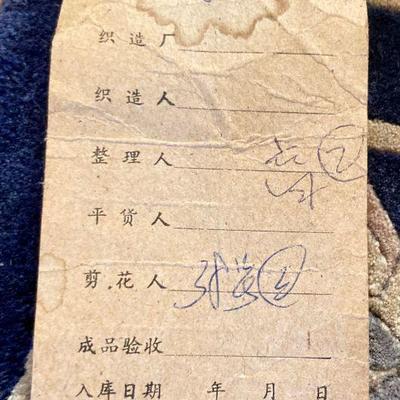 织造厂
织造人
整理人
平货人
剪.花人
成品验收
入库日期 年 月 日